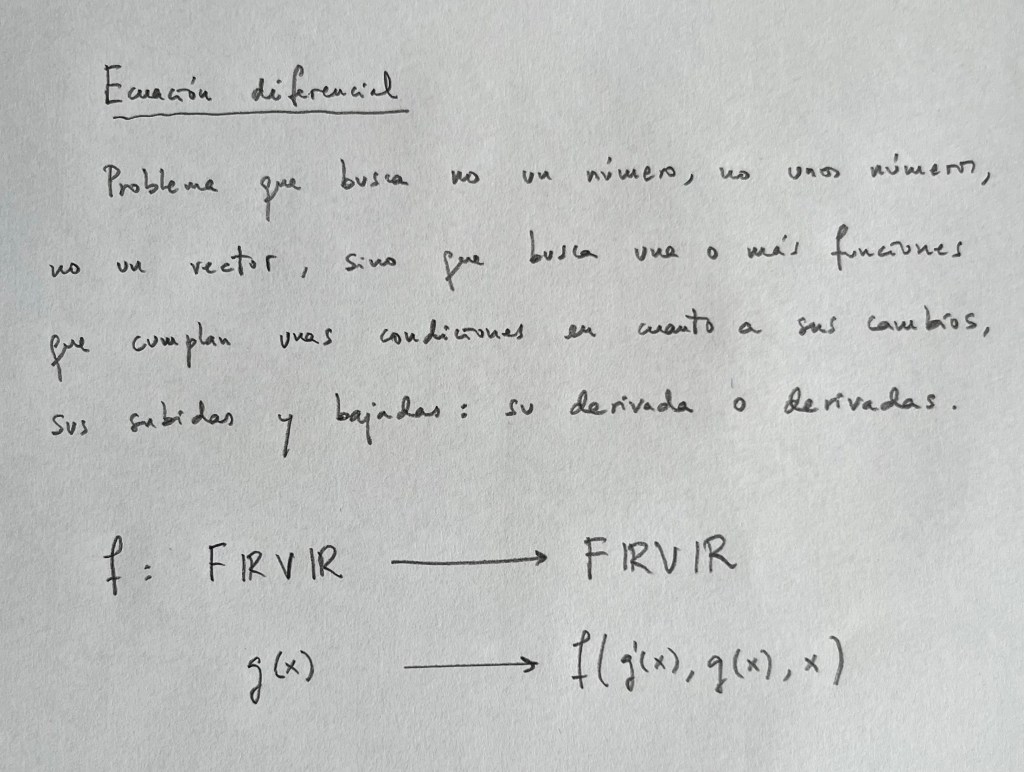 Ecuación diferencial
Problema que busca no un número, no unos números,
no un vector, sino que busca una o más funciones
que cumplan unas condiciones en cuanto a sus cambios,
sus subidas y bajadas: su derivada o derivadas.
f: FℝVℝ ⟶ FℝVℝ
g(x) ⟶ f(g'(x), g(x), x)